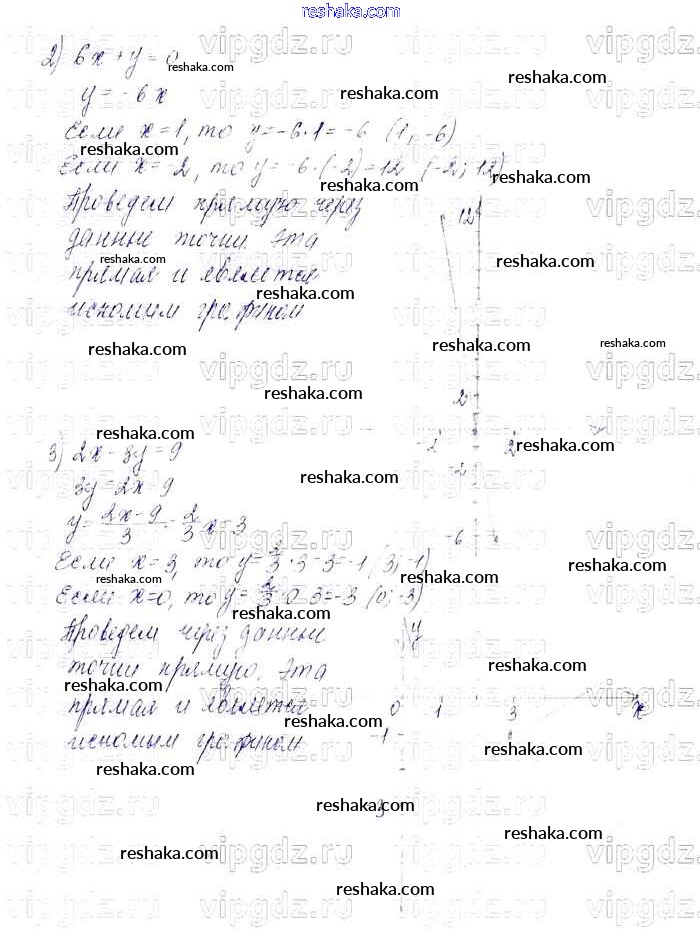 reshaka.com
2) 6x + y = 0
y = -6x
Если x = 1, то y = -6·1 = -6 (1; -6)
Если x = -2, то y = -6·(-2) = 12 (-2; 12)
Проведем прямую через
данные точки. Эта
прямая и является
искомым графиком
12
2
-2 2
-2
-6
3) 2x - 3y = 9
3y = 2x - 9
y = (2x - 9)/3 = 2/3 x - 3
Если x = 3, то y = 2/3 · 3 - 3 = -1 (3; -1)
Если x = 0, то y = 2/3 · 0 - 3 = -3 (0; -3)
Проведем через данные
точки прямую. Эта
прямая и является
искомым графиком
y
0 1 3 x
-1
3
vipgdz.ru